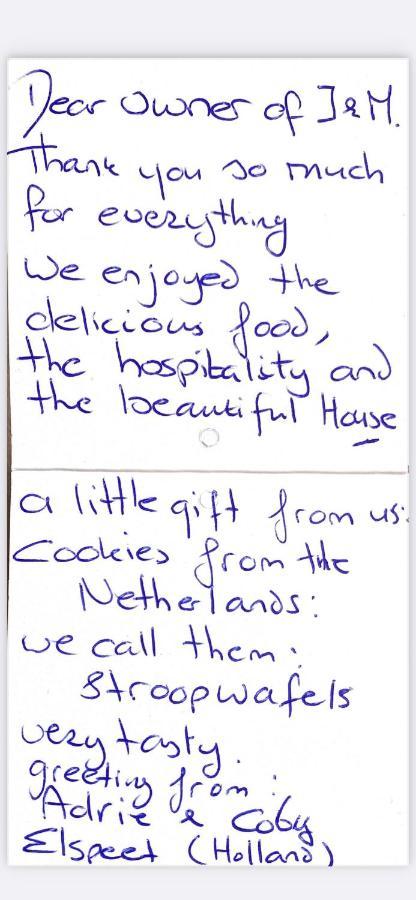 Dear owner of J&M.
Thank you so much
for everything
We enjoyed the
delicious food,
the hospitality and
the beautiful House
a little gift from us:
Cookies from the
Netherlands:
we call them:
Stroopwafels
very tasty.
greeting from:
Adrie & Coby
Elspeet (Holland)